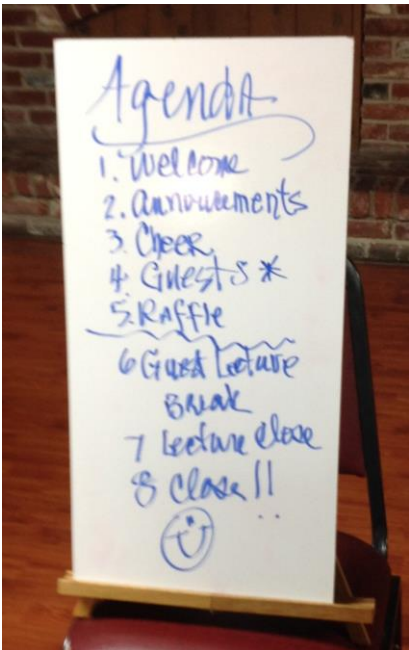 Agenda
1. Welcome
2. Announcements
3. Cheer
4. Guests *
5. Raffle
6 Guest Lecture
Break
7 Lecture Close
8 Close!!